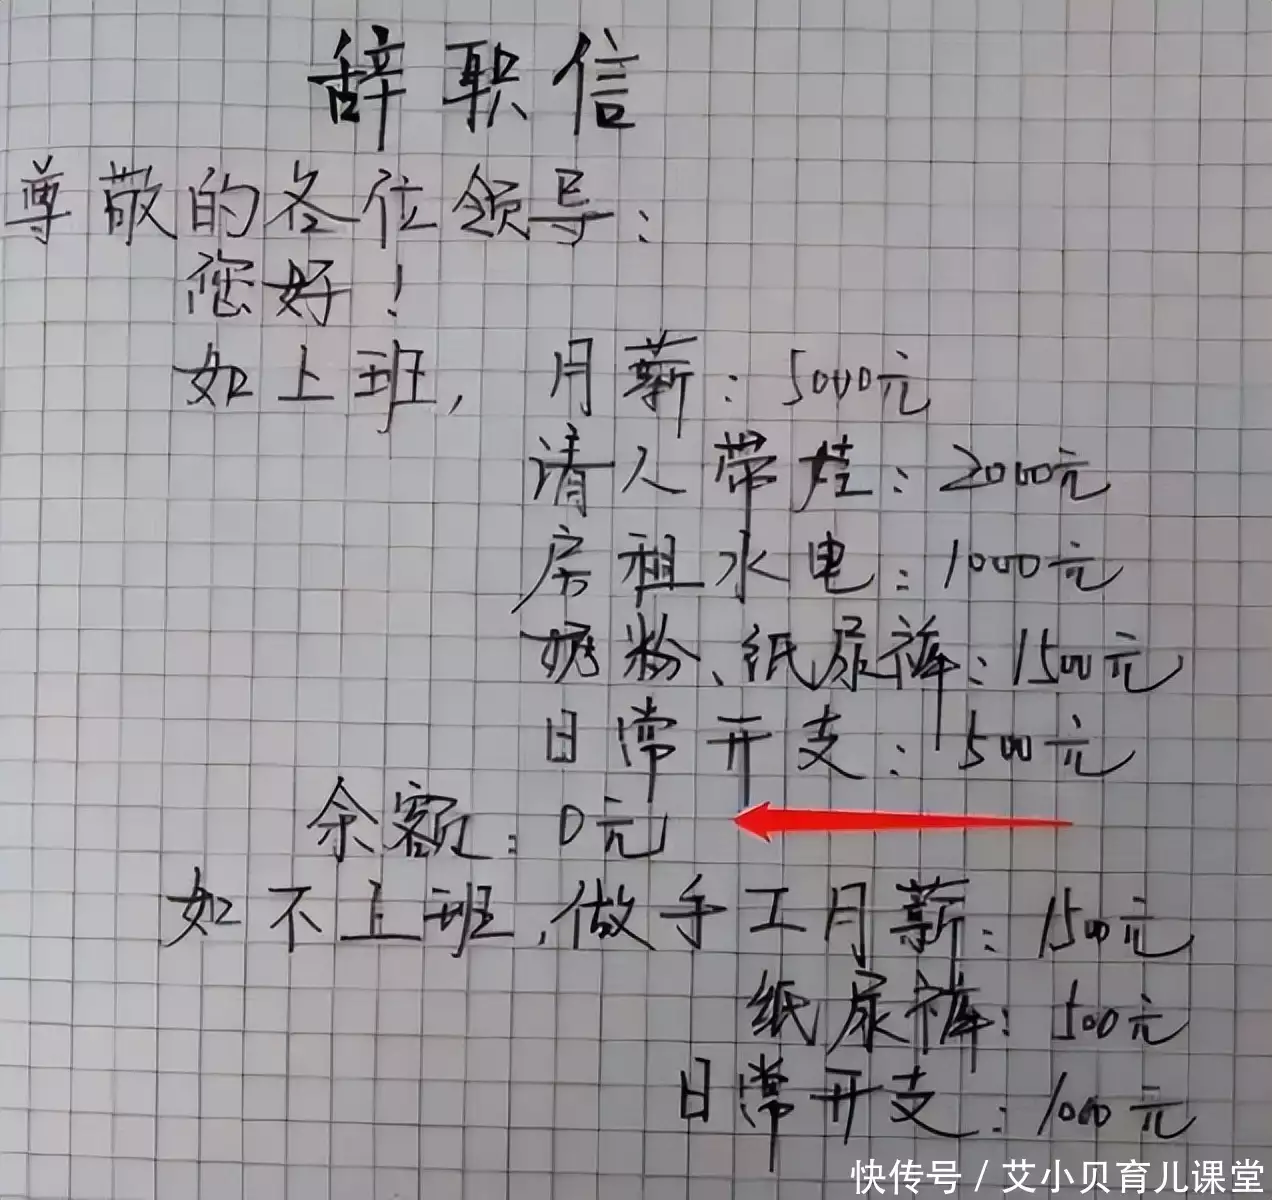 辞职信
尊敬的各位领导：
您好！
如上班，月薪：5000元
请人带娃：2000元
房租水电：1000元
奶粉、纸尿裤：1500元
日常开支：500元
余额：0元
如不上班，做手工月薪：1500元
纸尿裤：500元
日常开支：1000元
快传号/艾小贝育儿课堂